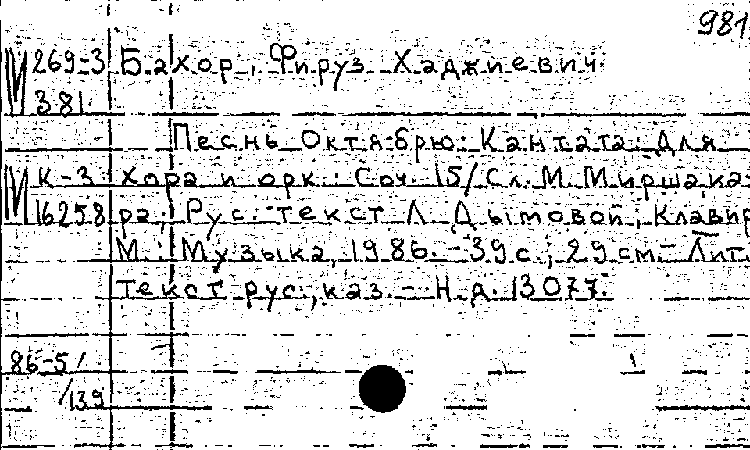 981
М 269-3 Бахор, Фируз Хаджиевич
381
Песнь Октябрю: Кантата: Для
М К-3 хора и орк.: Соч. 15/Сл. М. Миршака-
16258 ра; Рус. текст Л. Дымовой; Клавир
М.: Музыка, 1986. - 39 с.; 29 см. - Лит.
текст рус., каз. - Н.д. 13077.
86-5/
/139